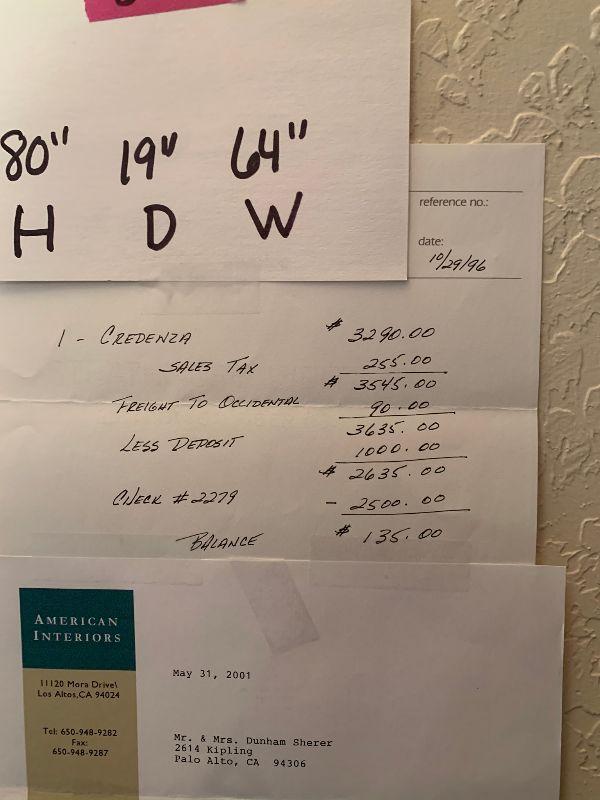 80" 19" 64"
H D W
reference no.:
date:
10/29/96
1 - CREDENZA $ 3290.00
SALES TAX 255.00
$ 3545.00
FREIGHT TO OCCIDENTAL 90.00
3635.00
LESS DEPOSIT 1000.00
$ 2635.00
CHECK #2279 - 2500.00
BALANCE $ 135.00
AMERICAN
INTERIORS
11120 Mora Drive\
Los Altos,CA 94024
Tel: 650-948-9282
Fax:
650-948-9287
May 31, 2001
Mr. & Mrs. Dunham Sherer
2614 Kipling
Palo Alto, CA 94306